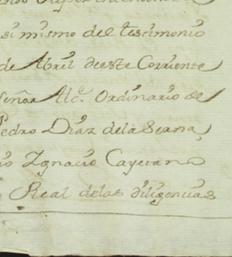 si mismo del testimonio
de Abril deeste Corriente
Señor Alc.ᵉ Ordinario de
Pedro Diaz dela Serna
Ygnacio Cayetano
Real delas diligencias